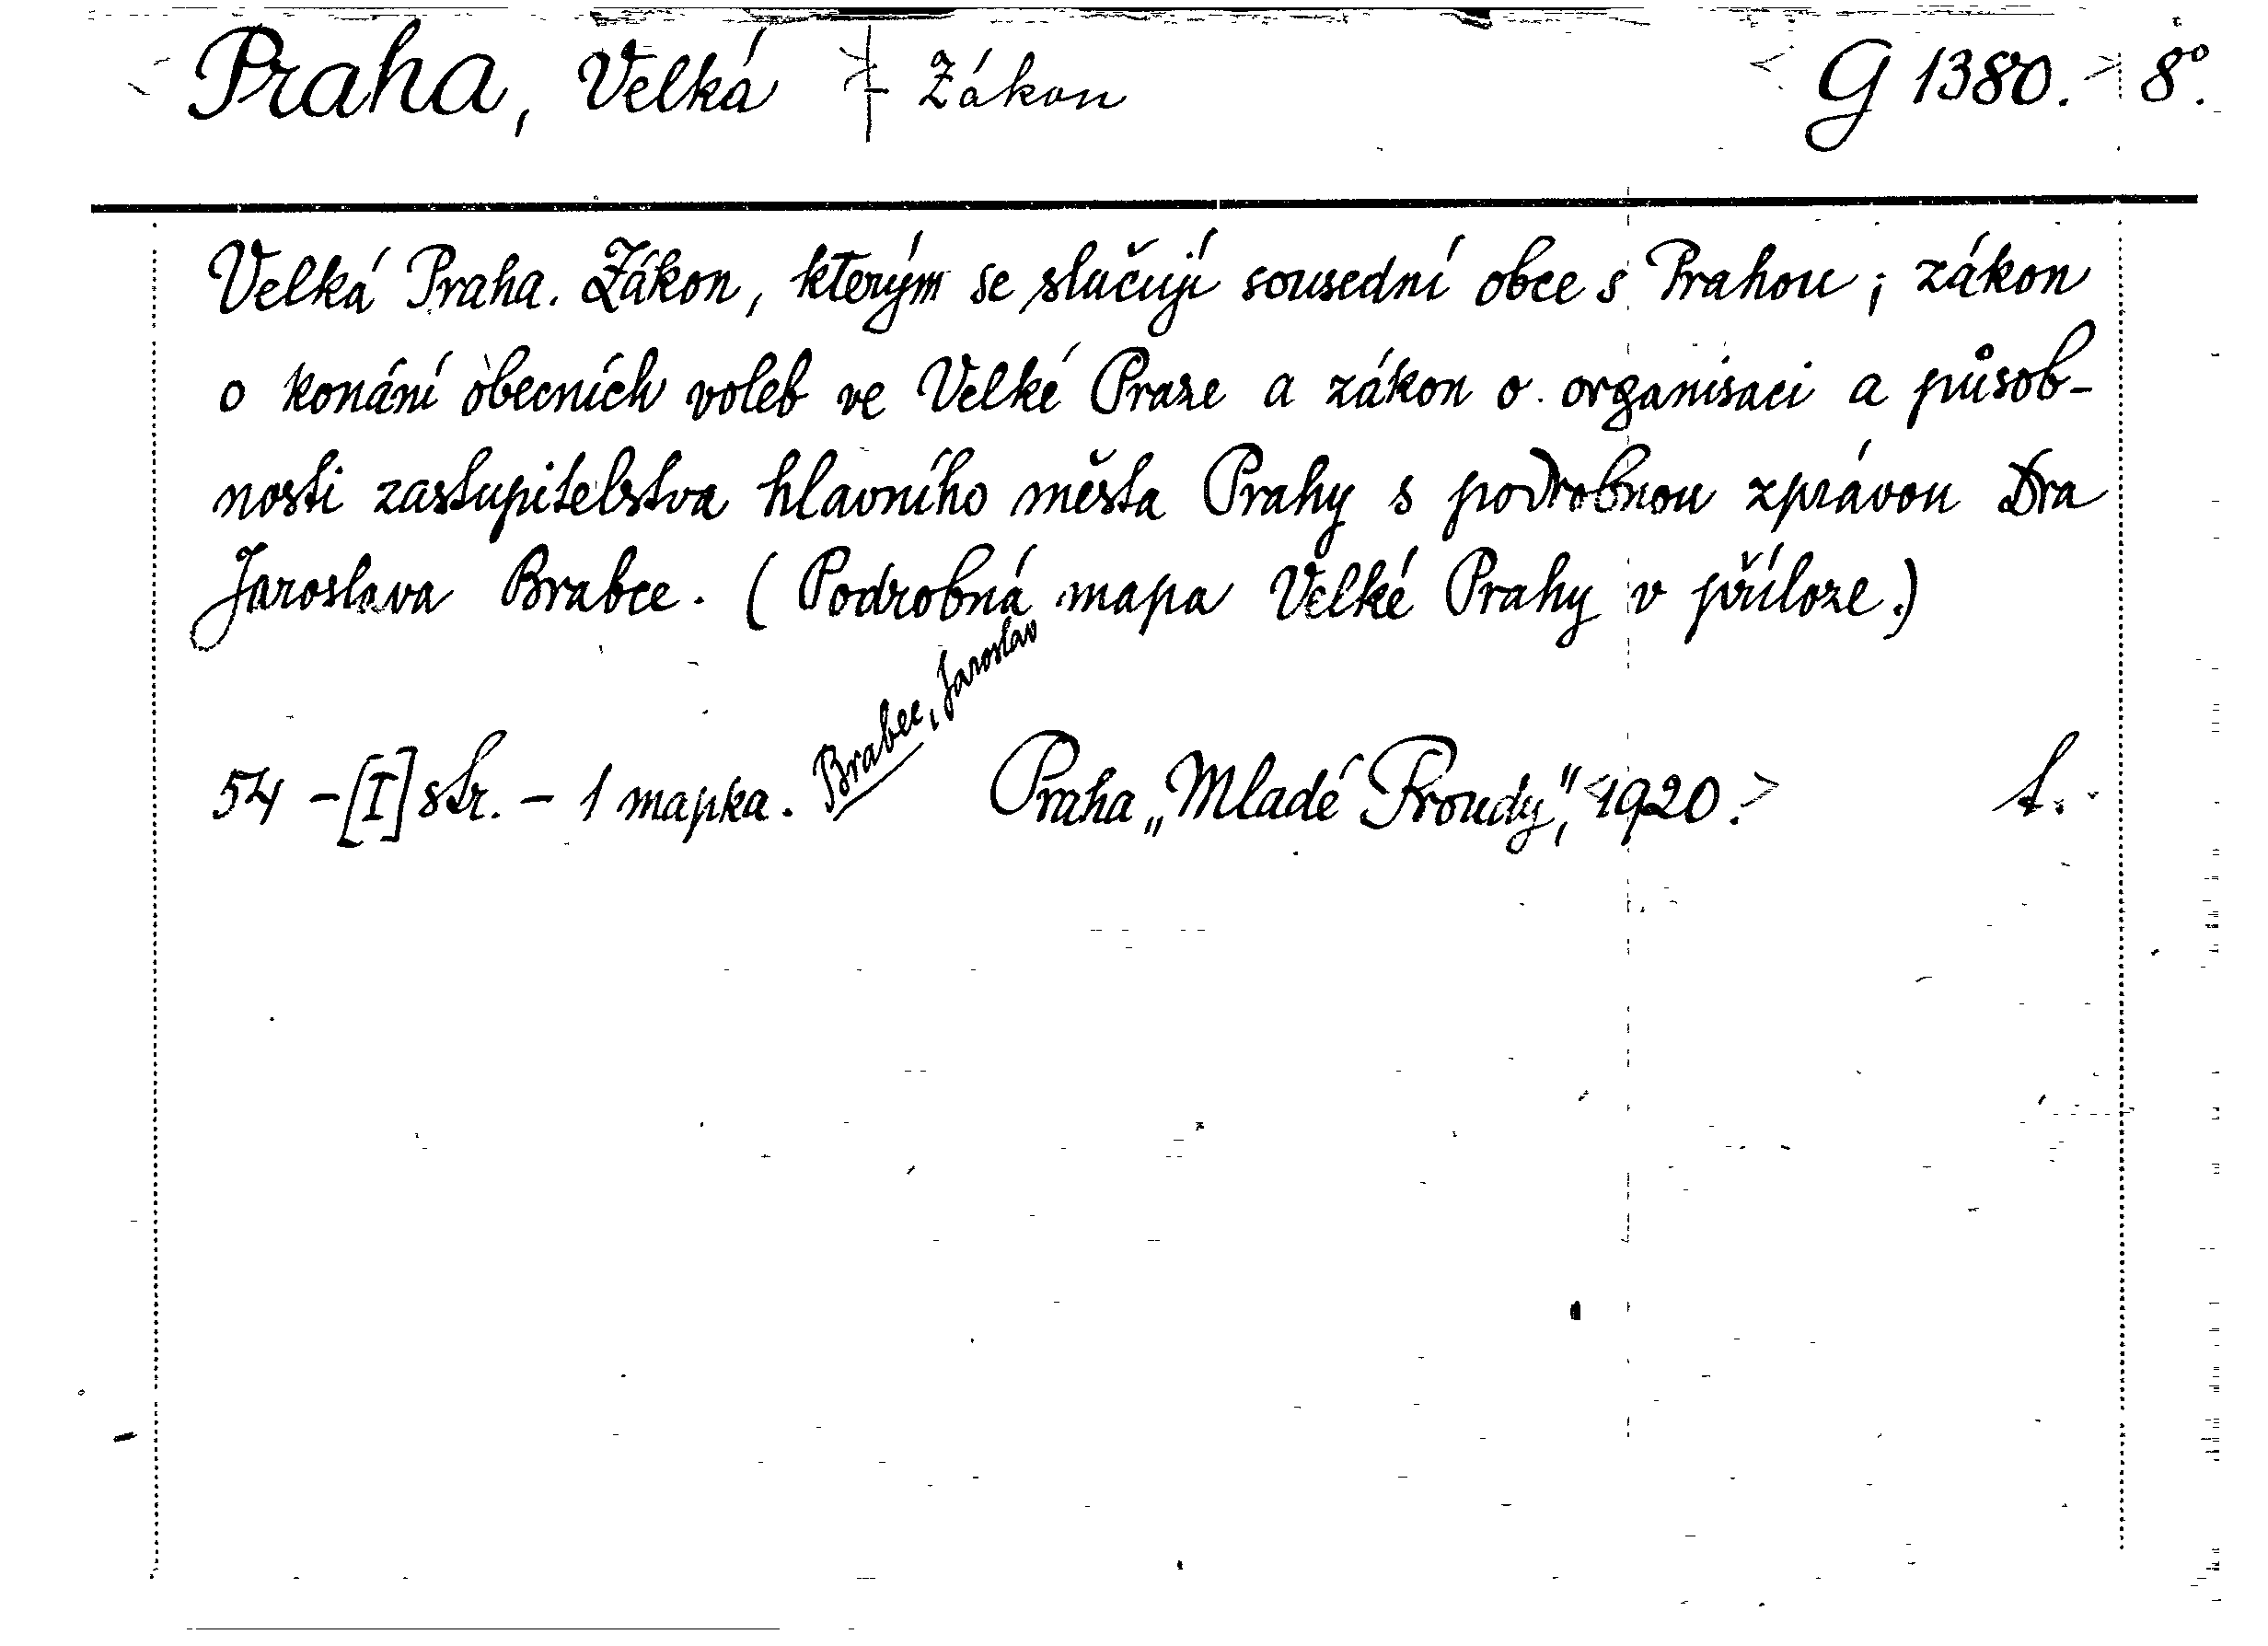 Praha, Velká + Zákon G 1380. 8°.
Velká Praha. Zákon, kterým se slučují sousední obce s Prahou; zákon
o konání obecních voleb ve Velké Praze a zákon o organisaci a působ-
nosti zastupitelstva hlavního města Prahy s podrobnou zprávou Dra
Jaroslava Brabce. (Podrobná mapa Velké Prahy v příloze.)
Brabec, Jaroslav
54 - [I] str. - 1 mapka. Praha „Mladé Proudy", <1920.> t.